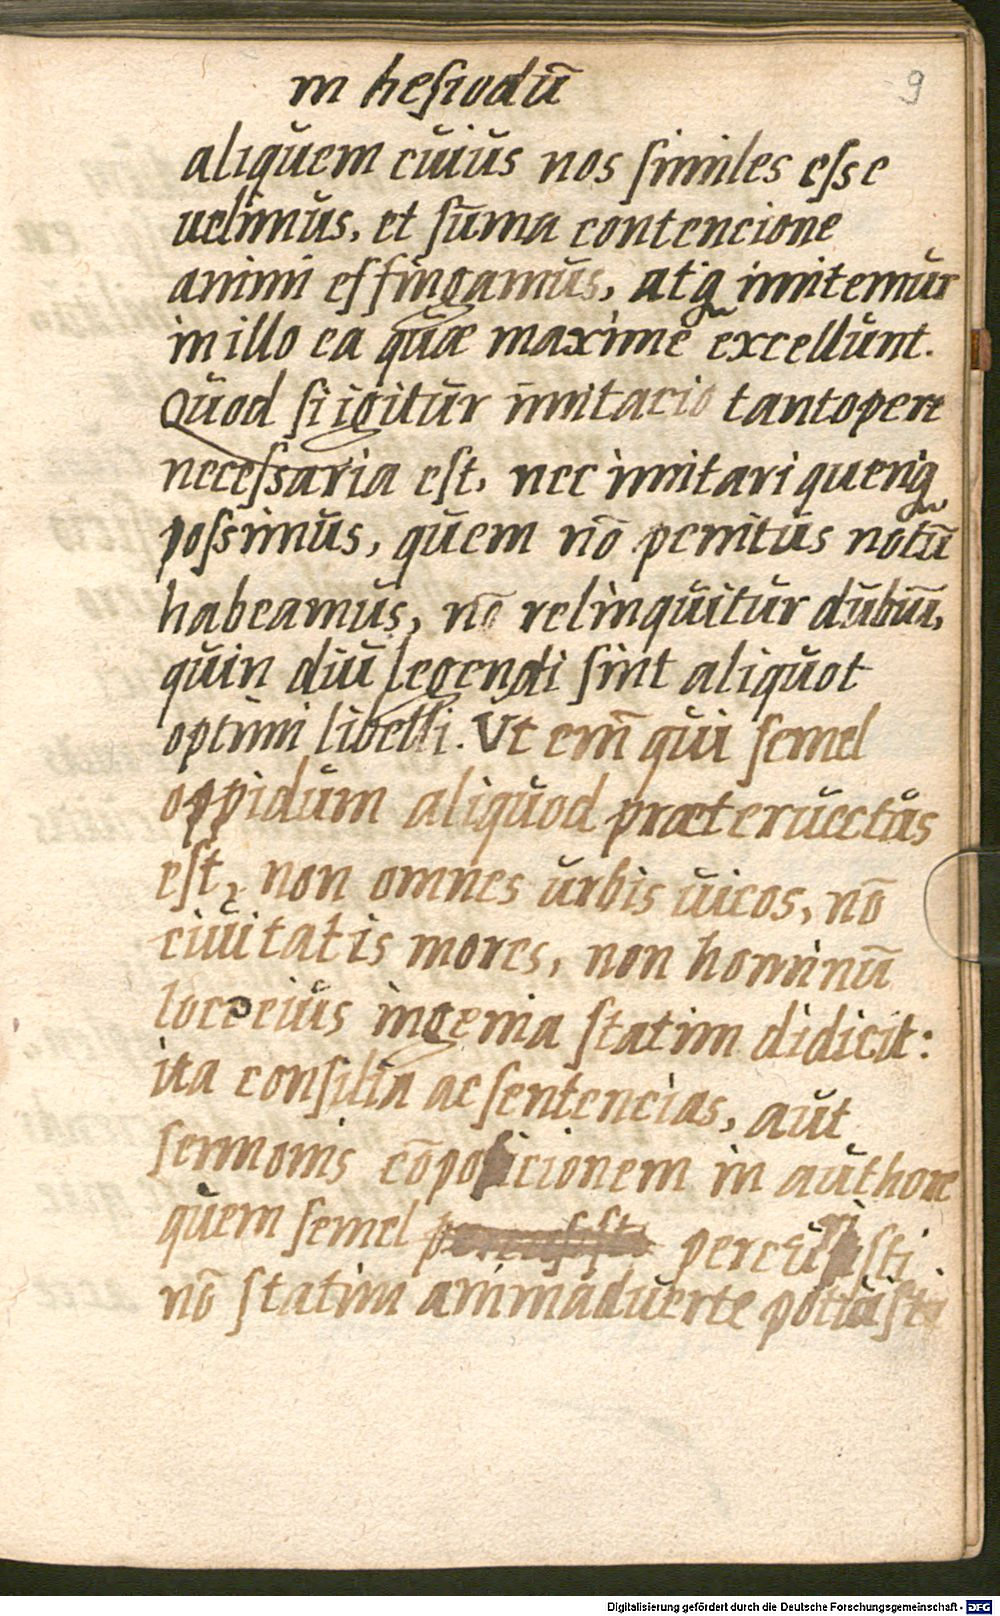 in hesiodū
9
aliquem cuius nos similes esse
uelimus, et sūma contencione
animi effingamus, atq imitemur
in illo ea quæ maxime excellunt.
Quod si igitur imitacio tantopere
necessaria est, nec imitari quenq
possimus, quem nō penitus notū
habeamus, nō relinquitur dubiū,
quin diu legendi sint aliquot
optimi libelli. Ut em̄ qui semel
oppidum aliquod præteruectus
est, non omnes urbis uicos, nō
ciuitatis mores, non hominū
loce eius ingenia statim didicit:
ita consilia ac sentencias, aut
sermonis cōposicionem in authore
quem semel percuristi
nō statim animaduerte potuisti
Digitalisierung gefördert durch die Deutsche Forschungsgemeinschaft - DFG